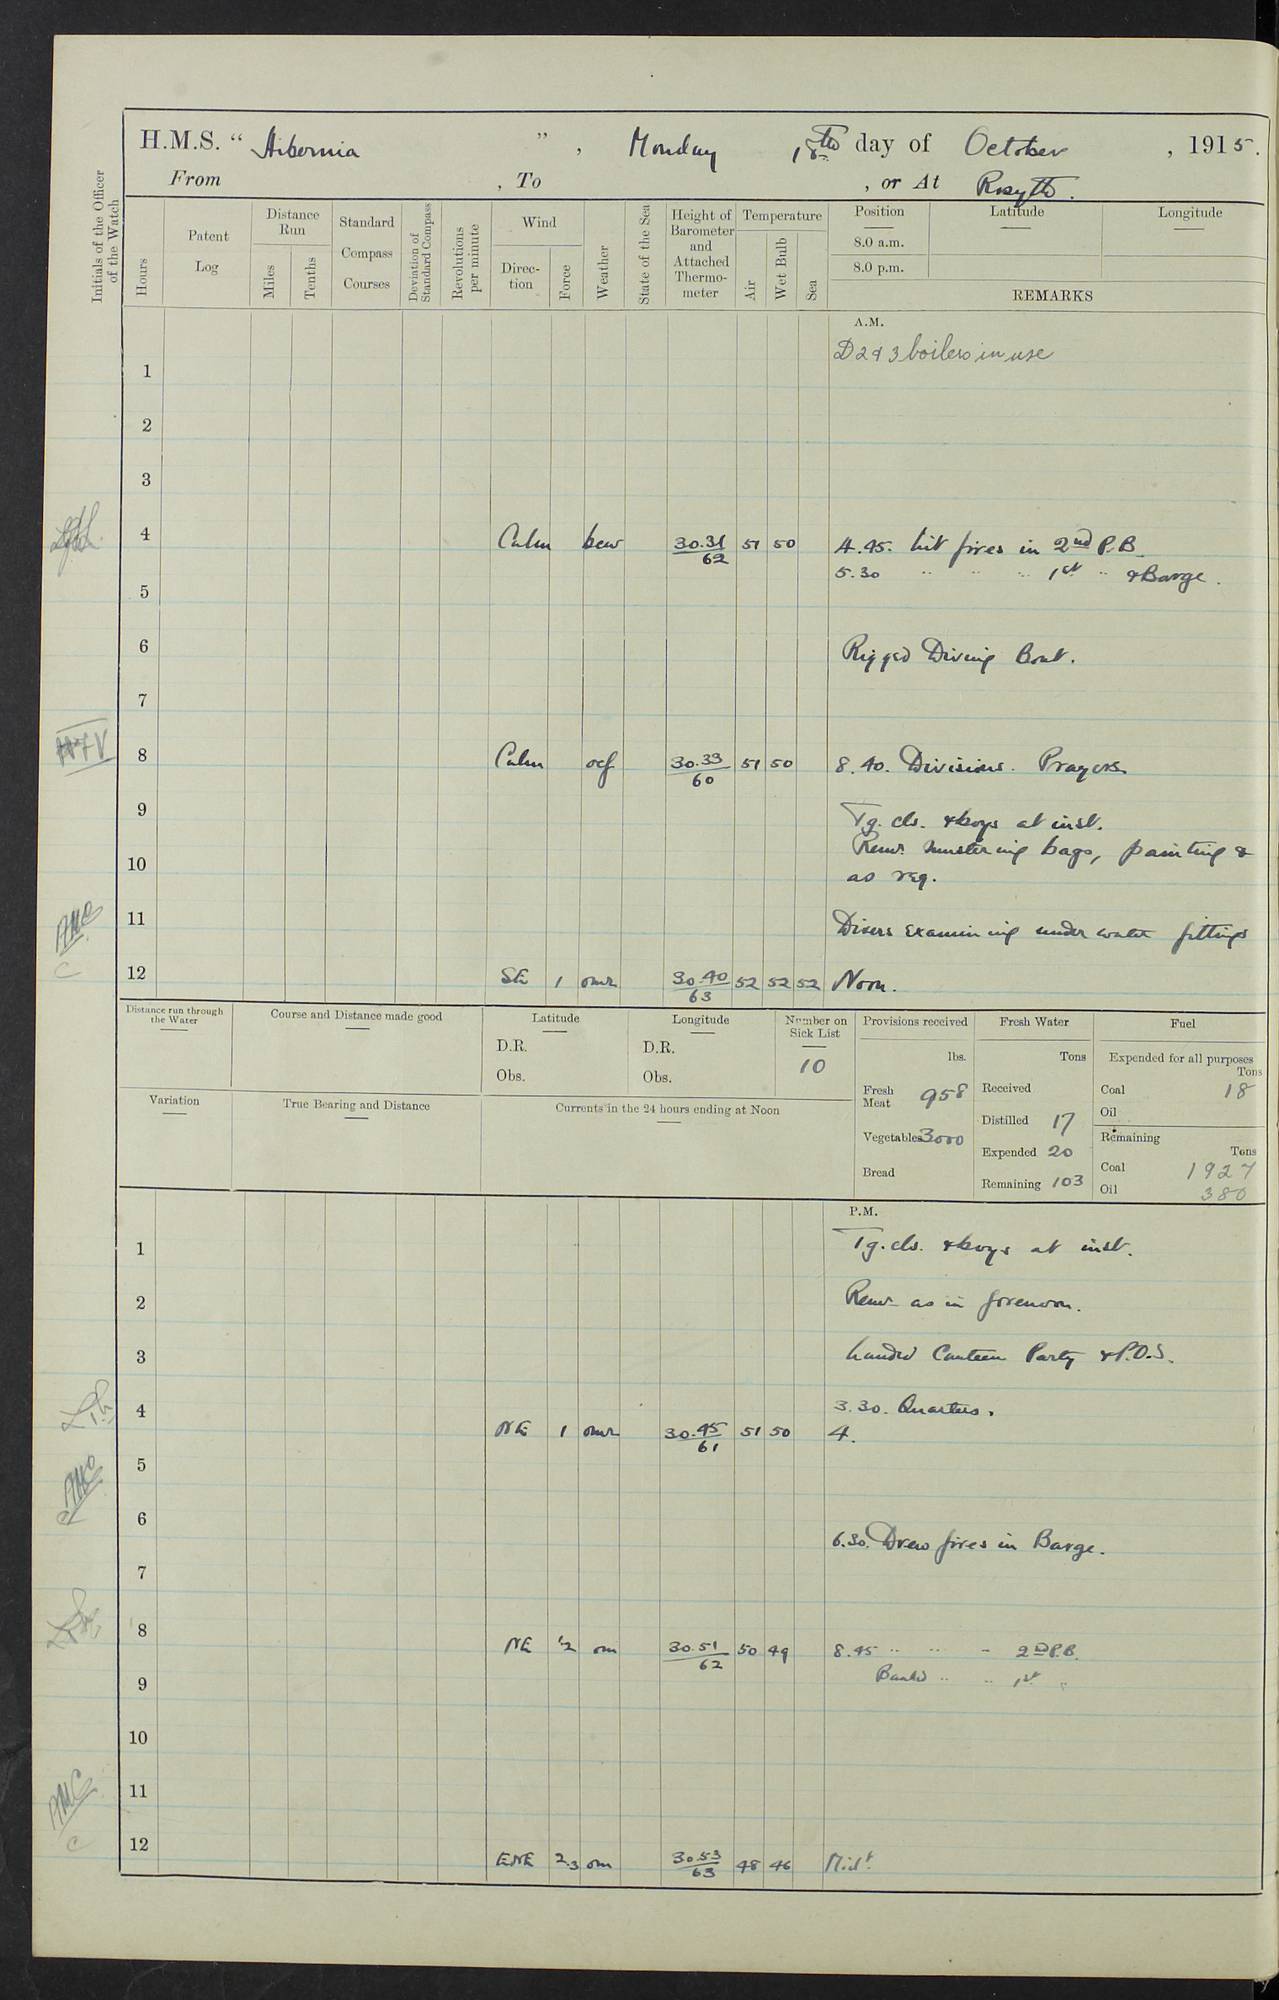 H.M.S. "Hibernia", Monday 18th day of October, 1915.
From , To , or At Rosyth.
Initials of the Officer of the Watch
Hours
Patent Log
Distance Run
Miles
Tenths
Standard Compass Courses
Deviation of Standard Compass
Revolutions per minute
Wind
Direction
Force
Weather
State of the Sea
Height of Barometer and Attached Thermometer
Temperature
Air
Wet Bulb
Sea
Position Latitude Longitude
8.0 a.m.
8.0 p.m.
REMARKS
A.M.
D 2 & 3 boilers in use
1
2
3
4 Calm bcw 30.31/62 51 50 4.45. Lit fires in 2nd P.B.
5.30 " " " 1st " & Barge.
5
6 Rigged Diving Boat.
7
8 Calm ocf 30.33/60 51 50 8.40. Divisions. Prayers
9 Tg. cls. & boys at inst.
10 Remr. mustering bags, painting &
as req.
11 Divers examining under water fittings
12 SE 1 omr 30.40/63 52 52 52 Noon.
Distance run through the Water
Course and Distance made good
Latitude
D.R.
Obs.
Longitude
D.R.
Obs.
Number on Sick List
10
Provisions received
lbs.
Fresh Meat 958
Vegetables 3000
Bread
Fresh Water
Tons
Received
Distilled 17
Expended 20
Remaining 103
Fuel
Expended for all purposes
Tons
Coal 18
Oil
Remaining
Tons
Coal 1927
Oil 380
Variation
True Bearing and Distance
Currents in the 24 hours ending at Noon
P.M.
1 Tg. cls. & boys at inst.
2 Remr as in forenoon.
3 Landed Canteen Party & P.O.S.
3.30. Quarters.
4 NE 1 omr 30.45/61 51 50 4.
5
6 6.30. Drew fires in Barge.
7
8 NE 1-2 om 30.51/62 50 49 8.45 " " " 2nd P.B.
9 Banked " " 1st "
10
11
12 ENE 2.3 om 30.53/63 48 46 Midt.
AMC
C